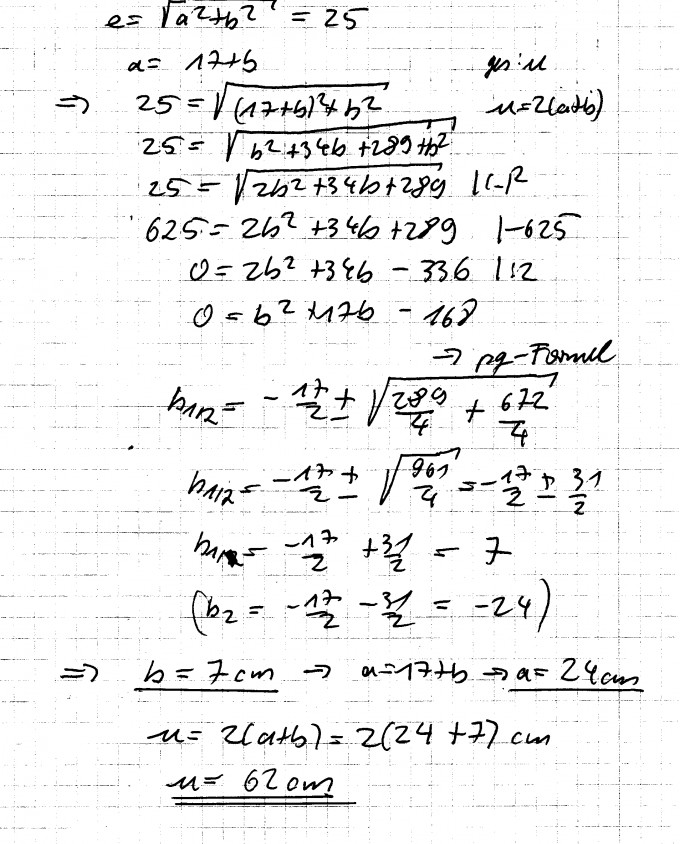 e = √(a²+b²) = 25
a = 17+b ges: u
⇒ 25 = √((17+b)²+b²) u=2(a+b)
25 = √(b²+34b+289+b²)
25 = √(2b²+34b+289) |(-)²
625 = 2b²+34b+289 |-625
0 = 2b²+34b - 336 |:2
0 = b²+17b - 168
→ pq-Formel
b1/2 = -17/2 ± √(289/4 + 672/4)
b1/2 = -17/2 ± √(961/4) = -17/2 ± 31/2
b1 = -17/2 + 31/2 = 7
(b2 = -17/2 - 31/2 = -24)
⇒ b = 7cm → a=17+b → a = 24cm
u = 2(a+b) = 2(24+7) cm
u = 62cm